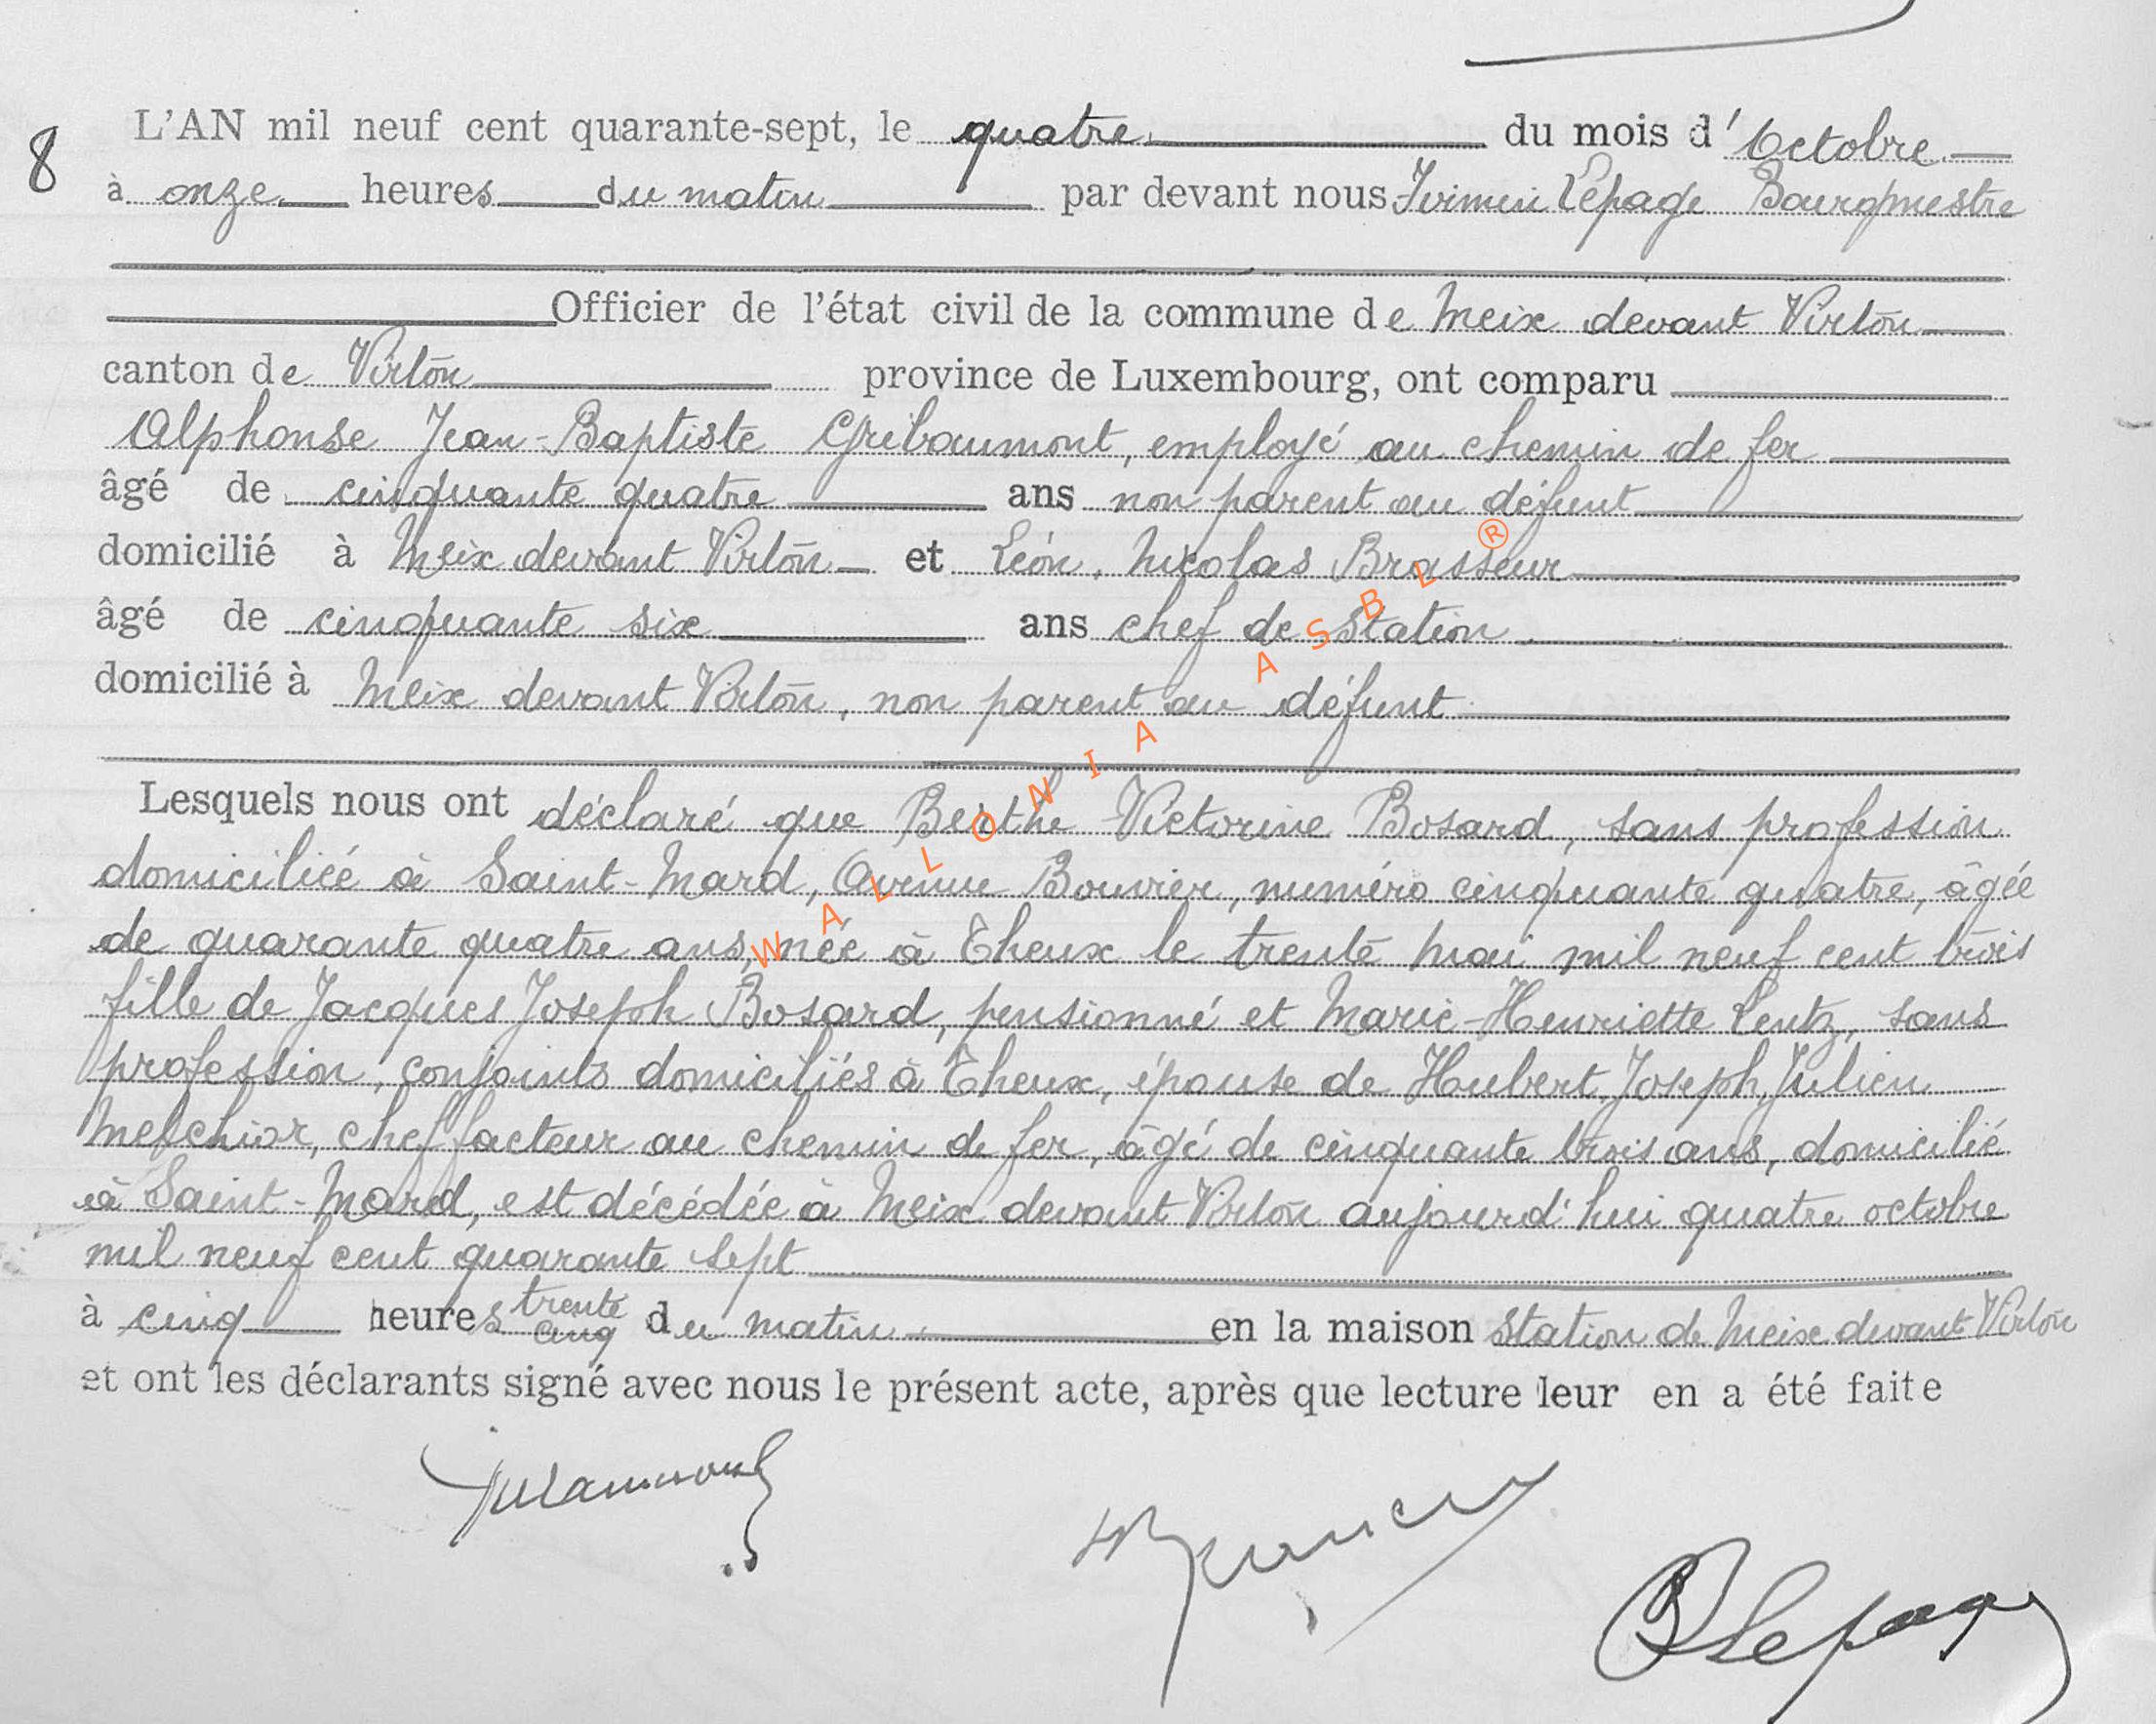 8
L'AN mil neuf cent quarante-sept, le quatre du mois d'Octobre
à onze heures du matin par devant nous Firmin Lepage Bourgmestre
Officier de l'état civil de la commune de Meix devant Virton
canton de Virton province de Luxembourg, ont comparu
Alphonse Jean-Baptiste Gribaumont, employé au chemin de fer
âgé de cinquante quatre ans non parent au défunt
domicilié à Meix devant Virton et Léon, Nicolas Brasseur
âgé de cinquante six ans chef de Station
domicilié à Meix devant Virton, non parent au défunt
Lesquels nous ont déclaré que Berthe Victorine Bosard, sans profession
domiciliée à Saint-Mard, Avenue Bouvier, numéro cinquante quatre, âgée
de quarante quatre ans, née à Theux le trente Mai mil neuf cent trois
fille de Jacques Joseph Bosard, pensionné et Marie-Henriette Lentz, sans
profession, conjoints domiciliés à Theux, épouse de Hubert, Joseph, Julien
Melchior, chef facteur au chemin de fer, âgé de cinquante trois ans, domicilié
à Saint-Mard, est décédée à Meix devant Virton aujourd'hui quatre octobre
mil neuf cent quarante sept
à cinq heures trente cinq du matin en la maison Station de Meix devant Virton
et ont les déclarants signé avec nous le présent acte, après que lecture leur en a été faite
Lepage
WALLONIA ASBL ®